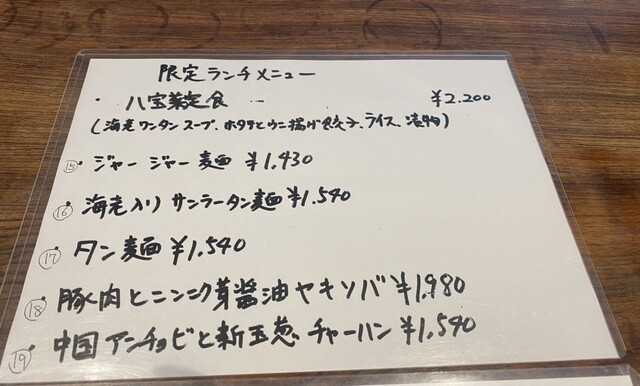 限定ランチメニュー
・八宝菜定食 … ¥2.200
(海老ワンタンスープ、ホタテとウニ揚げ餃子、ライス、漬物)
⑮ ジャージャー麺 ¥1.430
⑯ 海老入りサンラータン麺 ¥1.540
⑰ タン麺 ¥1.540
⑱ 豚肉とニンニク茸醤油ヤキソバ ¥1.980
⑲ 中国アンチョビと新玉葱チャーハン ¥1,540